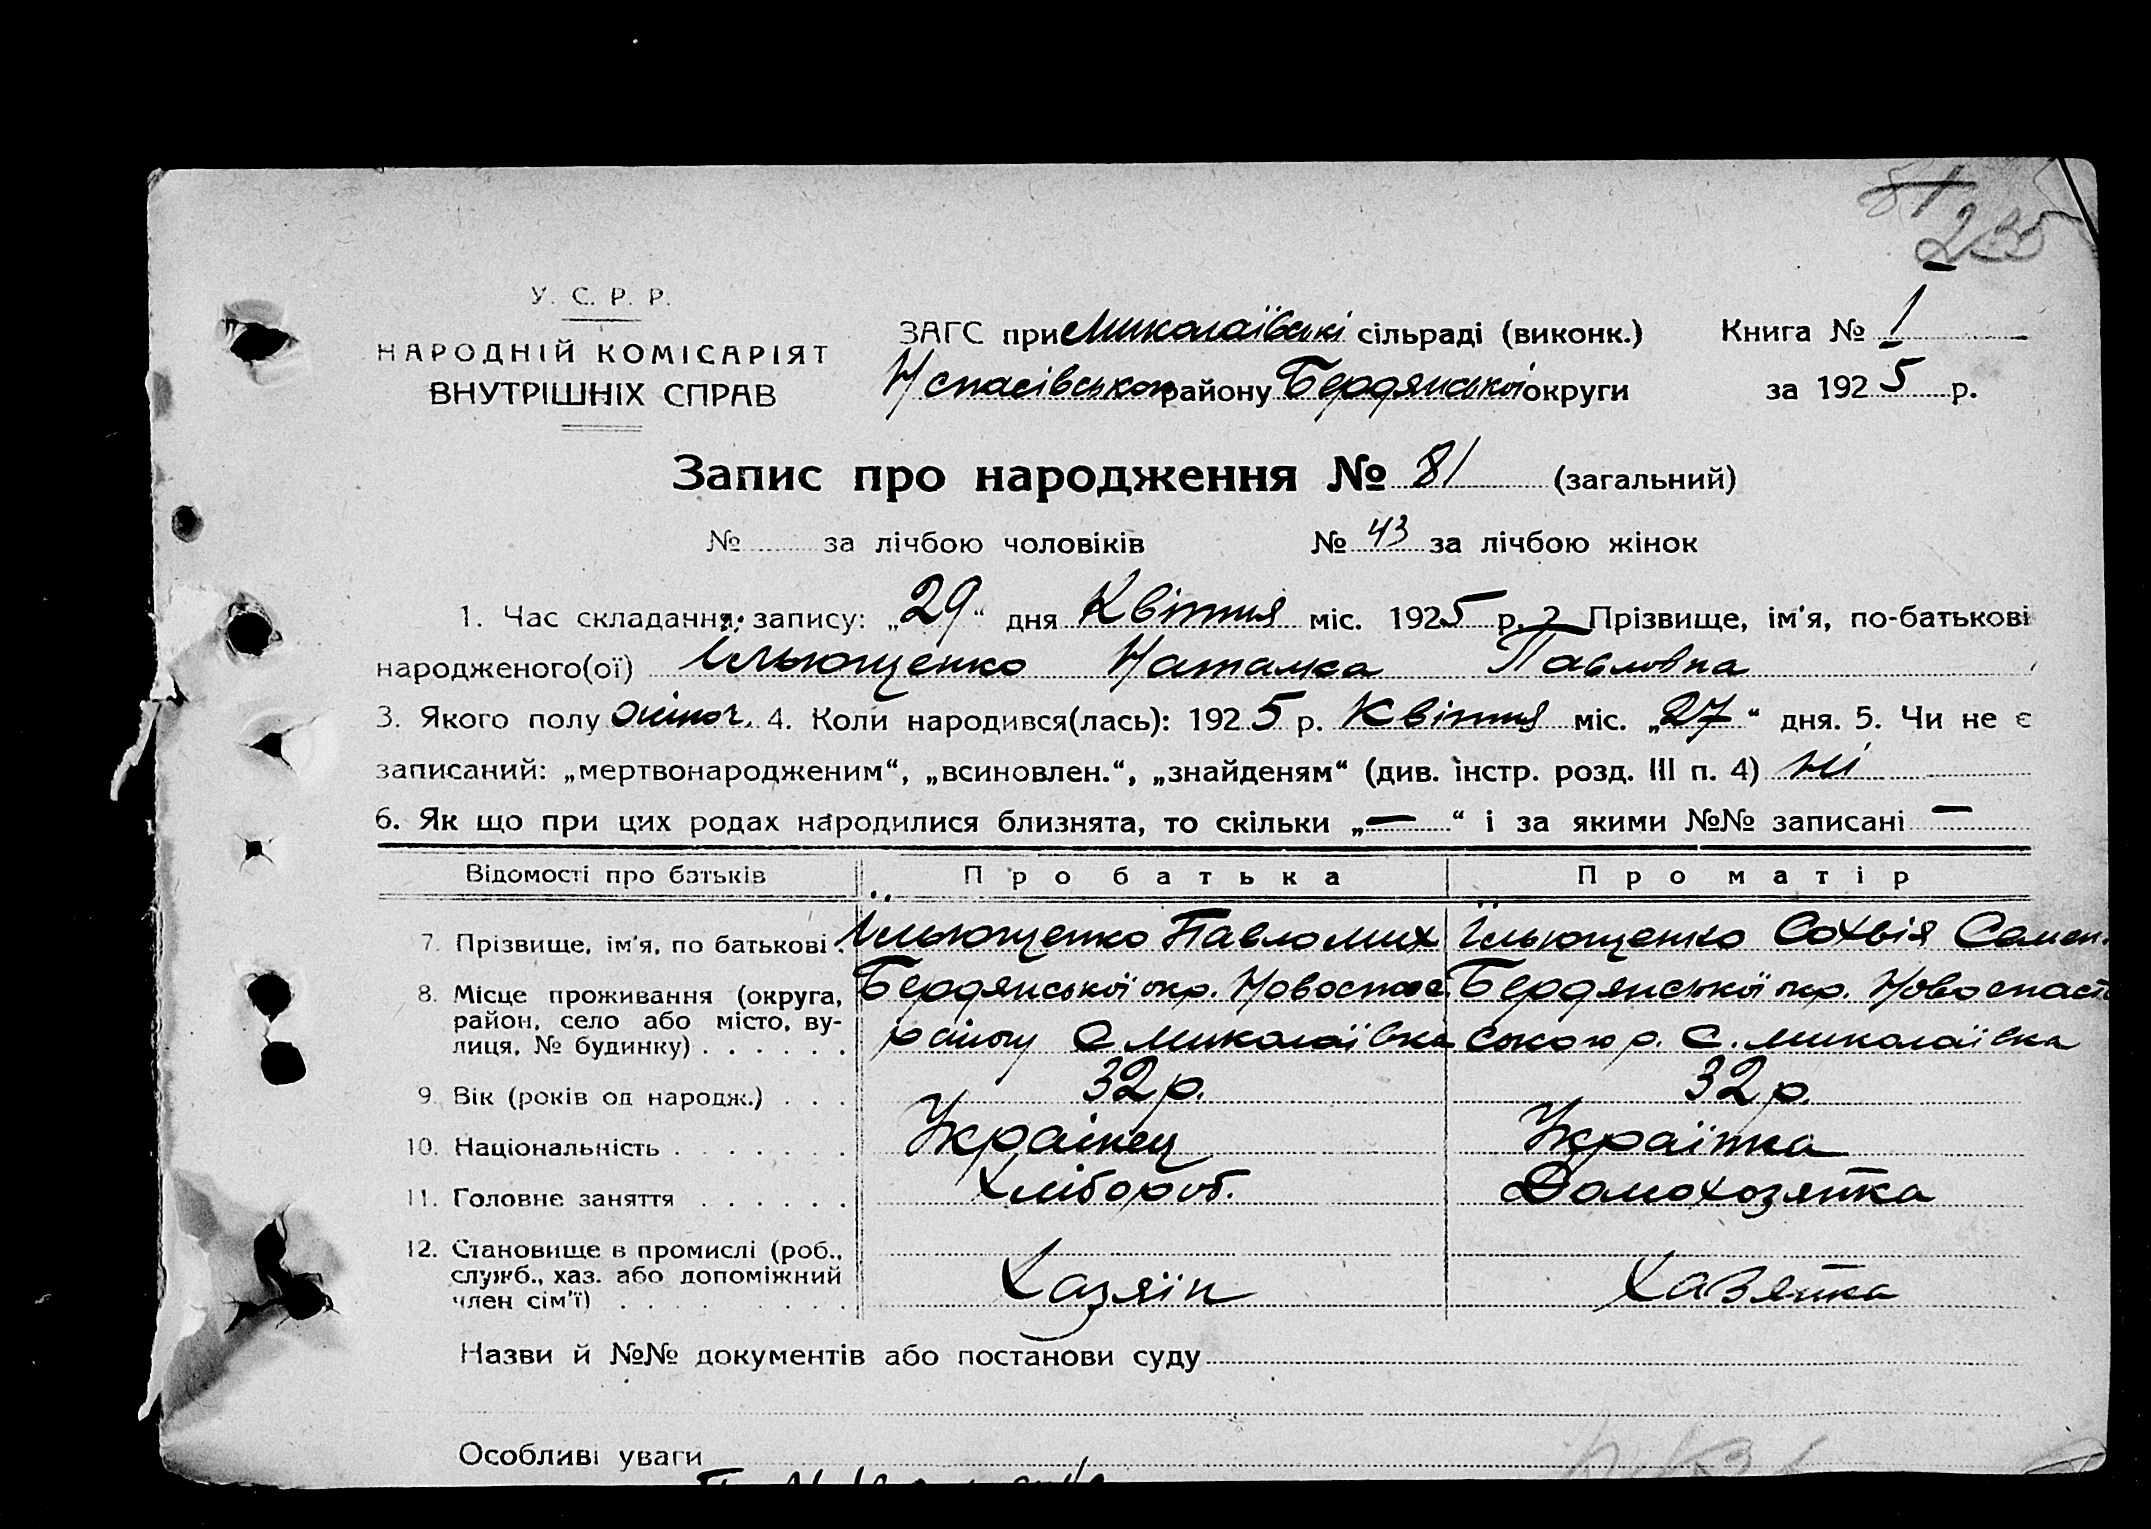 81
235
У. С. Р. Р.
НАРОДНІЙ КОМІСАРІЯТ
ВНУТРІШНІХ СПРАВ
ЗАГС при Миколаївські сільраді (виконк.) Книга № 1
Нспасівськом району Бердянської округи за 1925 р.
Запис про народження № 81 (загальний)
№ за лічбою чоловіків № 43 за лічбою жінок
1. Час складання запису: „29“ дня Квітня міс. 1925 р. 2 Прізвище, ім'я, по-батькові
народженого(ої) Ільющенко Наталка Павловна
3. Якого полу жіноч. 4. Коли народився(лась): 1925 р. Квітня міс. „27“ дня. 5. Чи не є
записаний: „мертвонародженим“, „всиновлен.“, „знайденям“ (див. інстр. розд. III п. 4) ні
6. Як що при цих родах народилися близнята, то скільки „—“ і за якими №№ записані —
Відомості про батьків Про батька Про матір
7. Прізвище, ім'я, по батькові. Ільющенко Павло Мих Ільющенко Сохвія Семен.
8. Місце проживання (округа, Бердянської окр. Новоспас Бердянської окр. Новоспасі
район, село або місто, ву-
лиця, № будинку) . . . . . . району С Миколаївка ського р. С. Миколаївка
9. Вік (років од народж.) . . . 32 р. 32 р.
10. Національність . . . . . . . Українец Українка
11. Головне заняття . . . . . . Хлібороб. Домохозяйка
12. Становище в промислі (роб.,
служб., хаз. або допоміжний Хазяїн Хазяйка
член сім'ї) . . . . . . . .
Назви й №№ документів або постанови суду
Особливі уваги